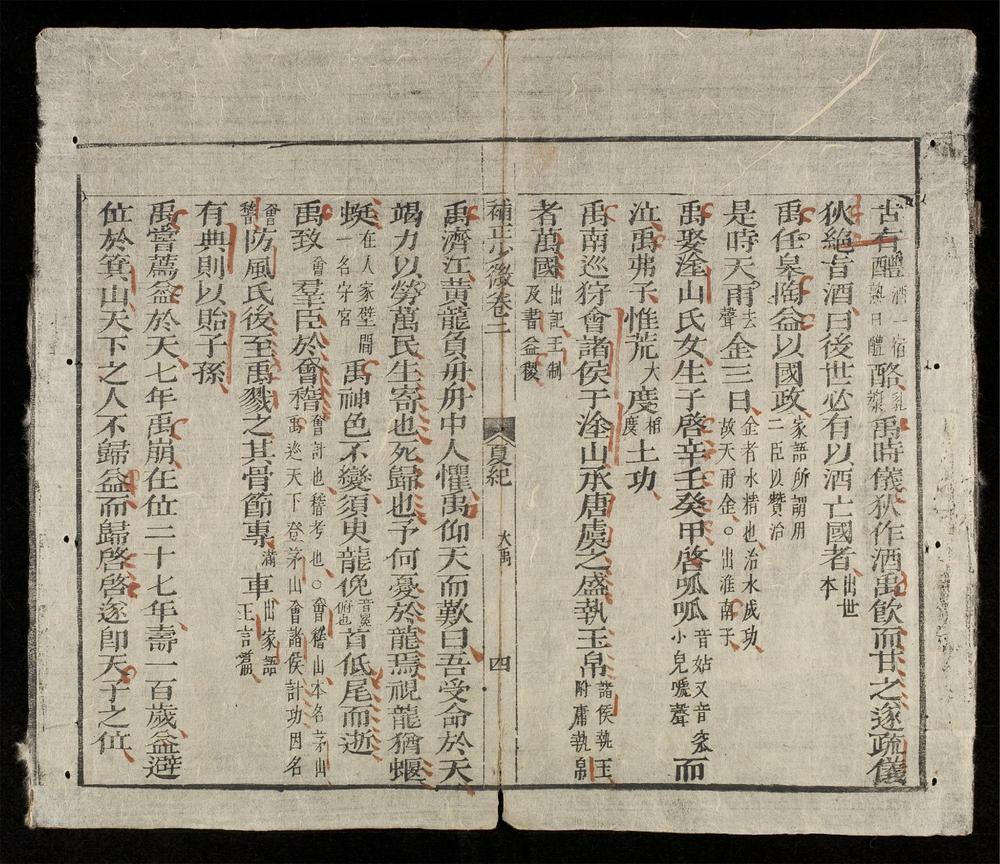 古有醴酒一宿熟曰醴酪乳漿禹時儀狄作酒禹飲而甘之遂疏儀
狄絶旨酒曰後世必有以酒亡國者出世本
禹任皋陶益以國政家語所謂用二臣以贊治
是時天雨去聲金三日金者水精也治水成功故天雨金○出淮南子
禹娶塗山氏女生子啓辛壬癸甲啓呱呱音姑又音窊小兒啼聲而
泣禹弗子惟荒大度相度土功
禹南巡狩會諸侯于塗山承唐虞之盛執玉帛諸侯執玉附庸執帛
者萬國出記王制及書益稷
補正少微卷二 夏紀 大禹 四
禹濟江黃龍負舟舟中人懼禹仰天而歎曰吾受命於天
竭力以勞萬民生寄也死歸也予何憂於龍焉視龍猶蝘
蜓在人家壁間一名守宮禹神色不變須臾龍俛音免俯也首低尾而逝
禹致會羣臣於會稽會計也稽考也○會稽山本名茅山禹巡天下登茅山會諸侯計功因名
會稽防風氏後至禹戮之其骨節專滿車出家語王言篇
有典則以貽子孫
禹嘗薦益於天七年禹崩在位二十七年壽一百歲益避
位於箕山天下之人不歸益而歸啓啓遂卽天子之位